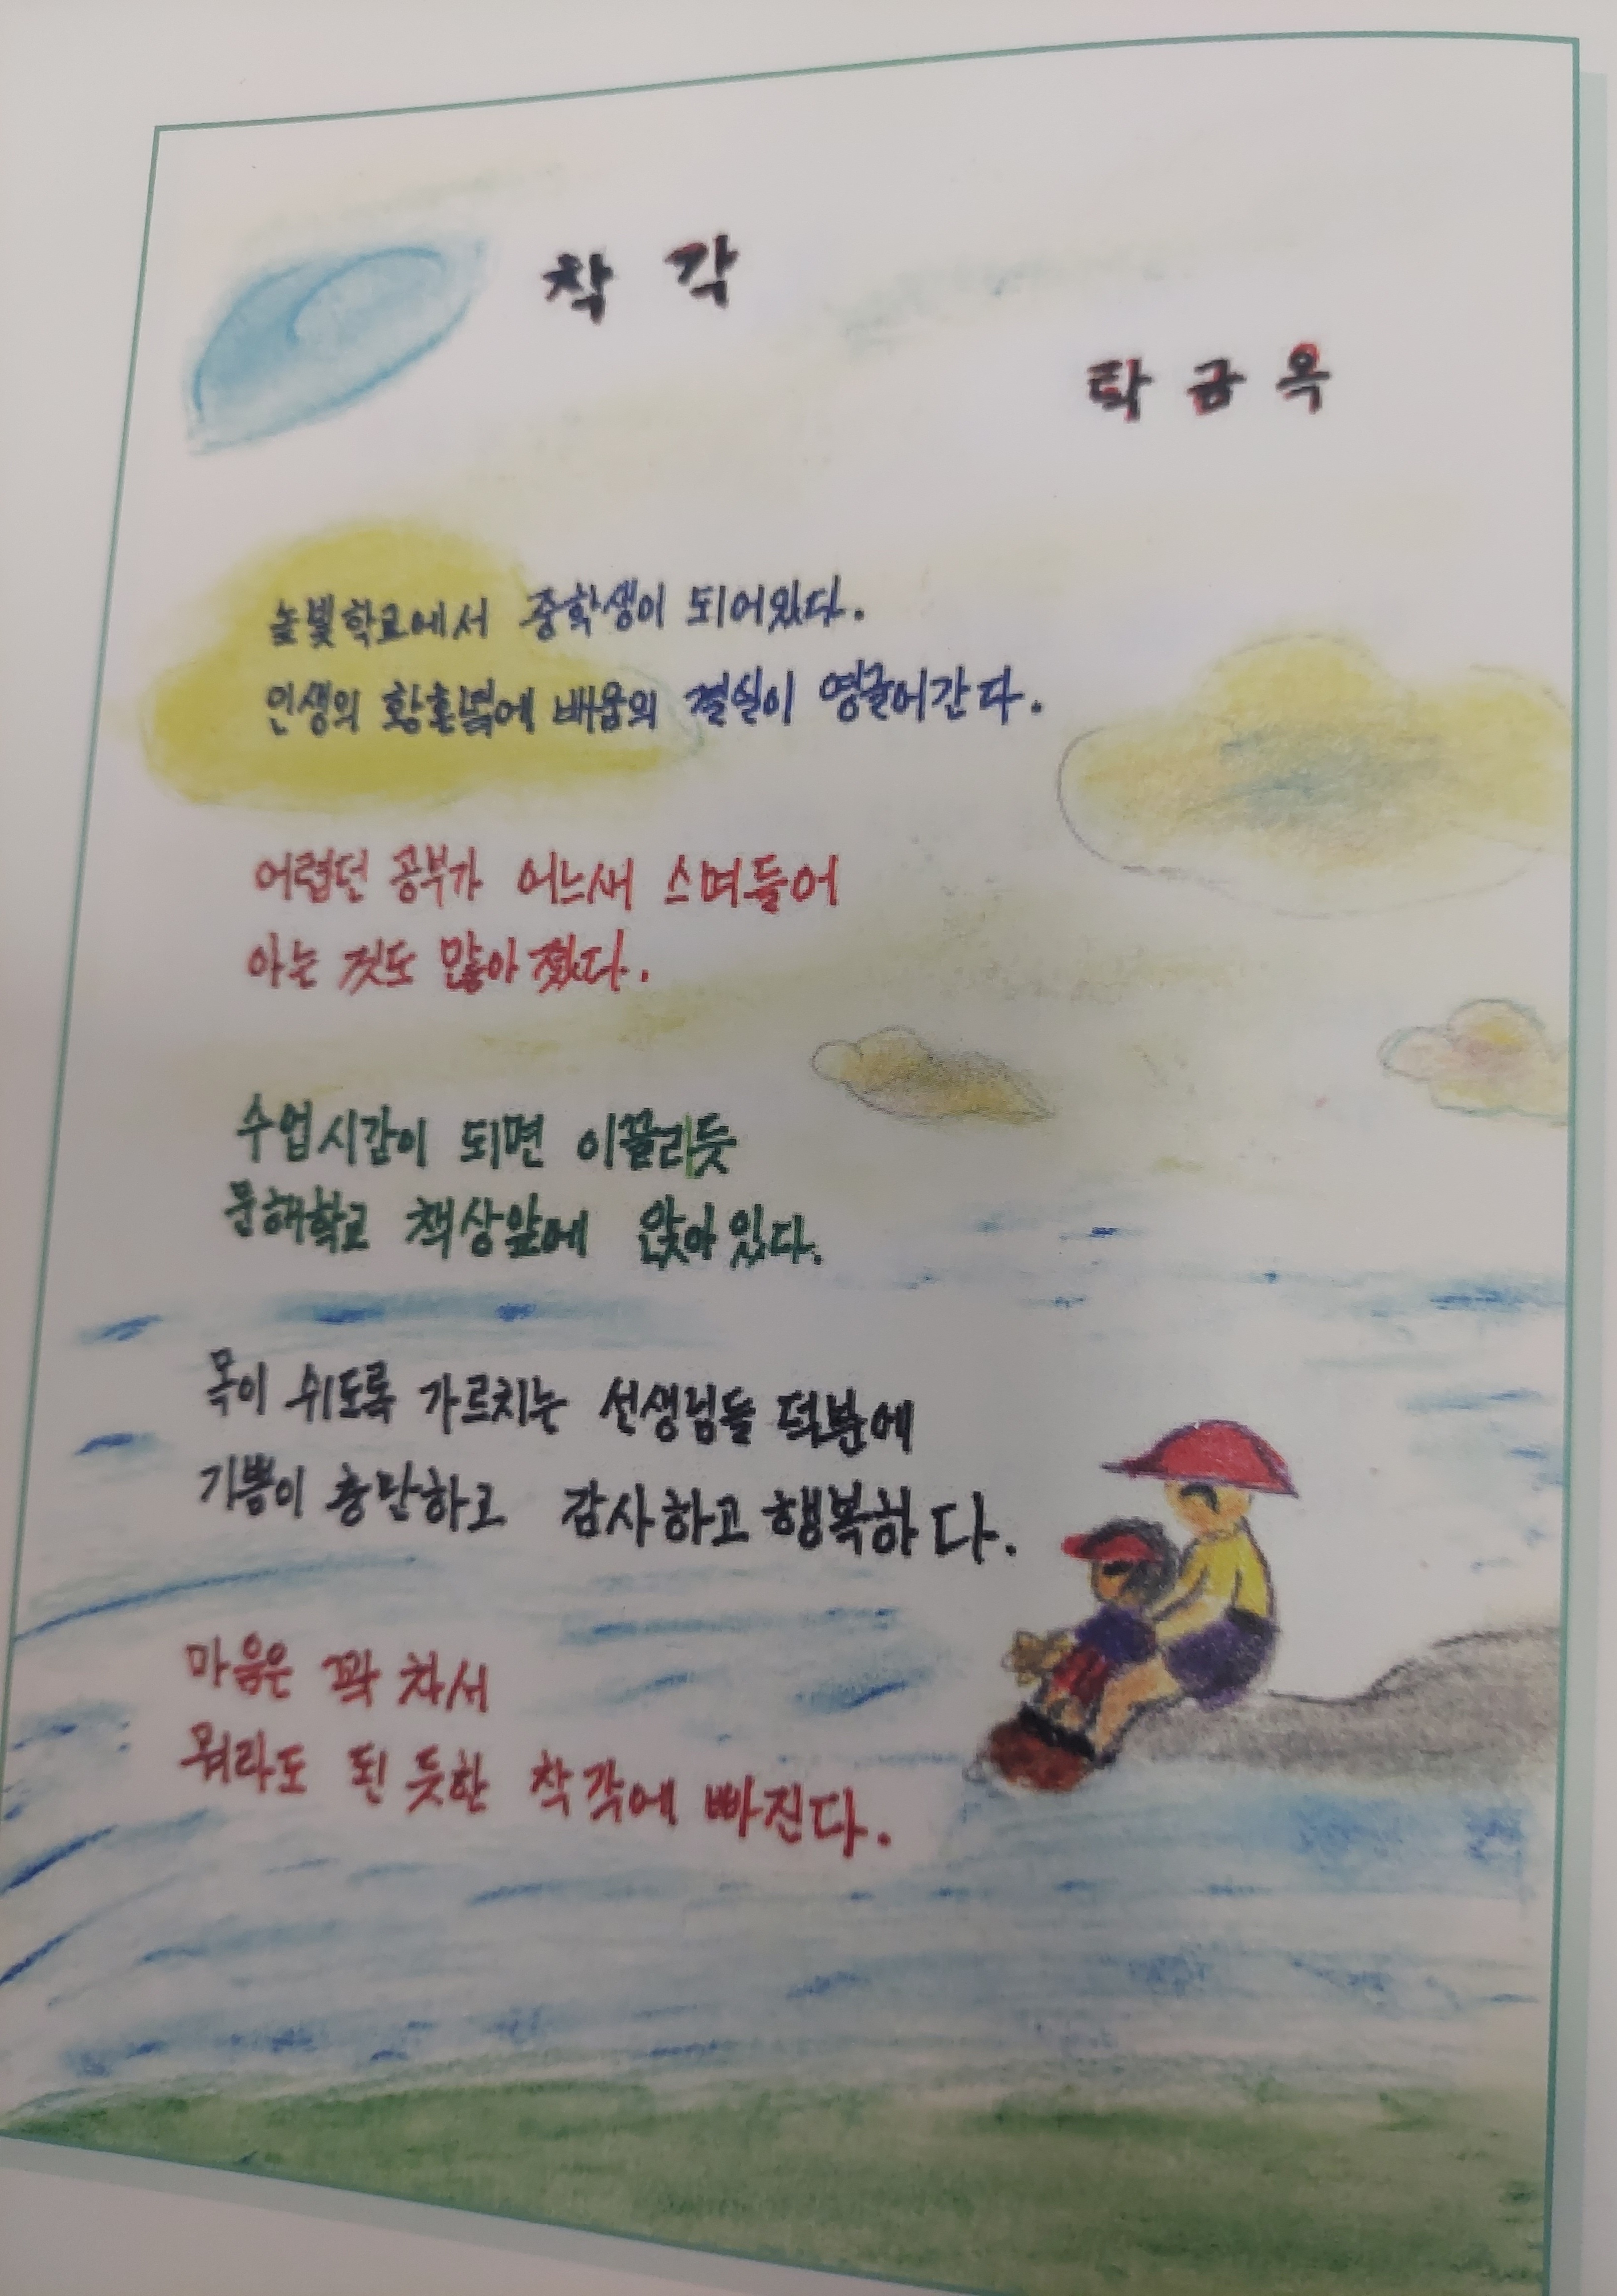 착각
탁금옥
늘빛학교에서 중학생이 되어있다.
인생의 황혼녘에 배움의 결실이 영글어간다.
어렵던 공부가 어느새 스며들어
아는 것도 많아 졌다.
수업시간이 되면 이끌리듯
문해학교 책상앞에 앉아있다.
목이 쉬도록 가르치는 선생님들 덕분에
기쁨이 충만하고 감사하고 행복하다.
마음은 꽉 차서
뭐라도 된 듯한 착각에 빠진다.